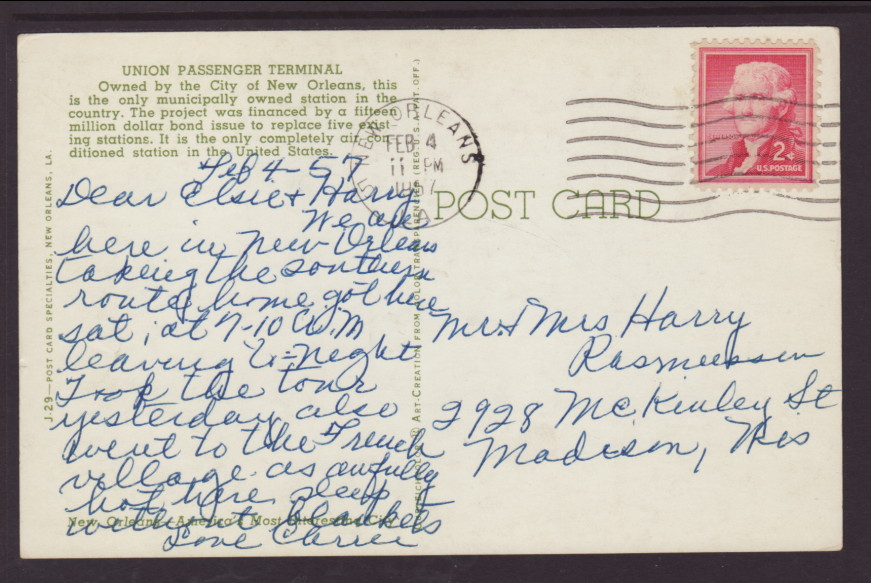 UNION PASSENGER TERMINAL
Owned by the City of New Orleans, this
is the only municipally owned station in the
country. The project was financed by a fifteen
million dollar bond issue to replace five exist-
ing stations. It is the only completely air con-
ditioned station in the United States.
Feb 4-57
Dear Elsie + Harry
We are
here in New Orleans
taking the southern
route home got here
sat, at 7-10 A.M
leaving to-night
Took the tour
yesterday also
went to the French
village. as awfully
hot here sleep
without blankets
Love Carrie
New Orleans—America's Most Interesting City
J-29—POST CARD SPECIALTIES, NEW ORLEANS, LA.
ART-CREATION FROM COLOR TRANSPARENCIES (REG. U. S. A. PAT. OFF.)
NEW ORLEANS
FEB 4
11 PM
1957
LA
POST CARD
2¢
U.S. POSTAGE
Mr + Mrs Harry
Rasmussen
2928 McKinley St
Madison, Wis